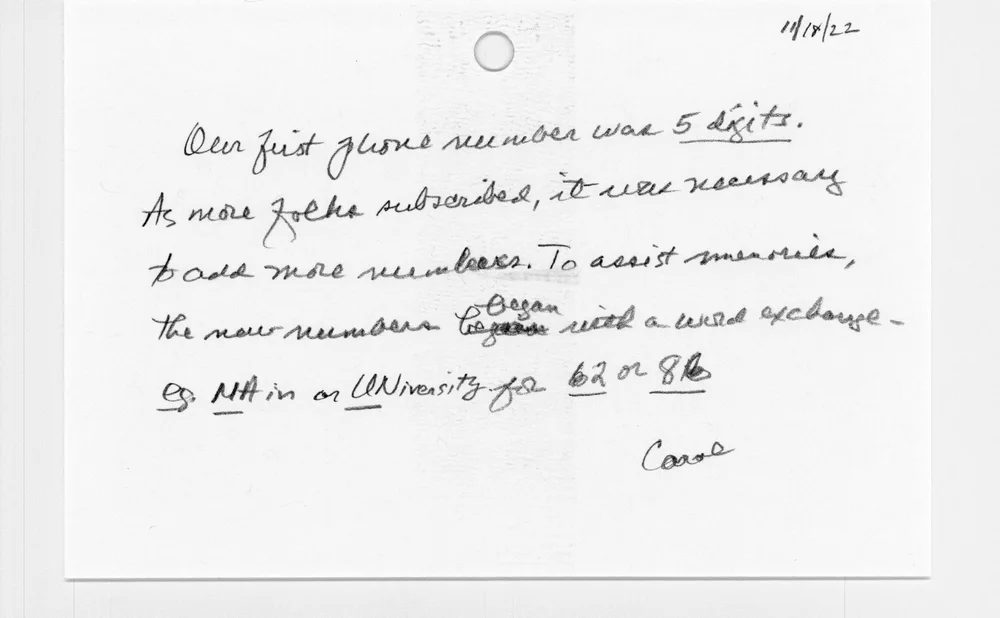 11/18/22
Our first phone number was 5 digits.
As more folks subscribed, it was necessary
to add more numbers. To assist memories,
the new numbers began with a word exchange -
eg. MAin or UNiversity for 62 or 86
Carol